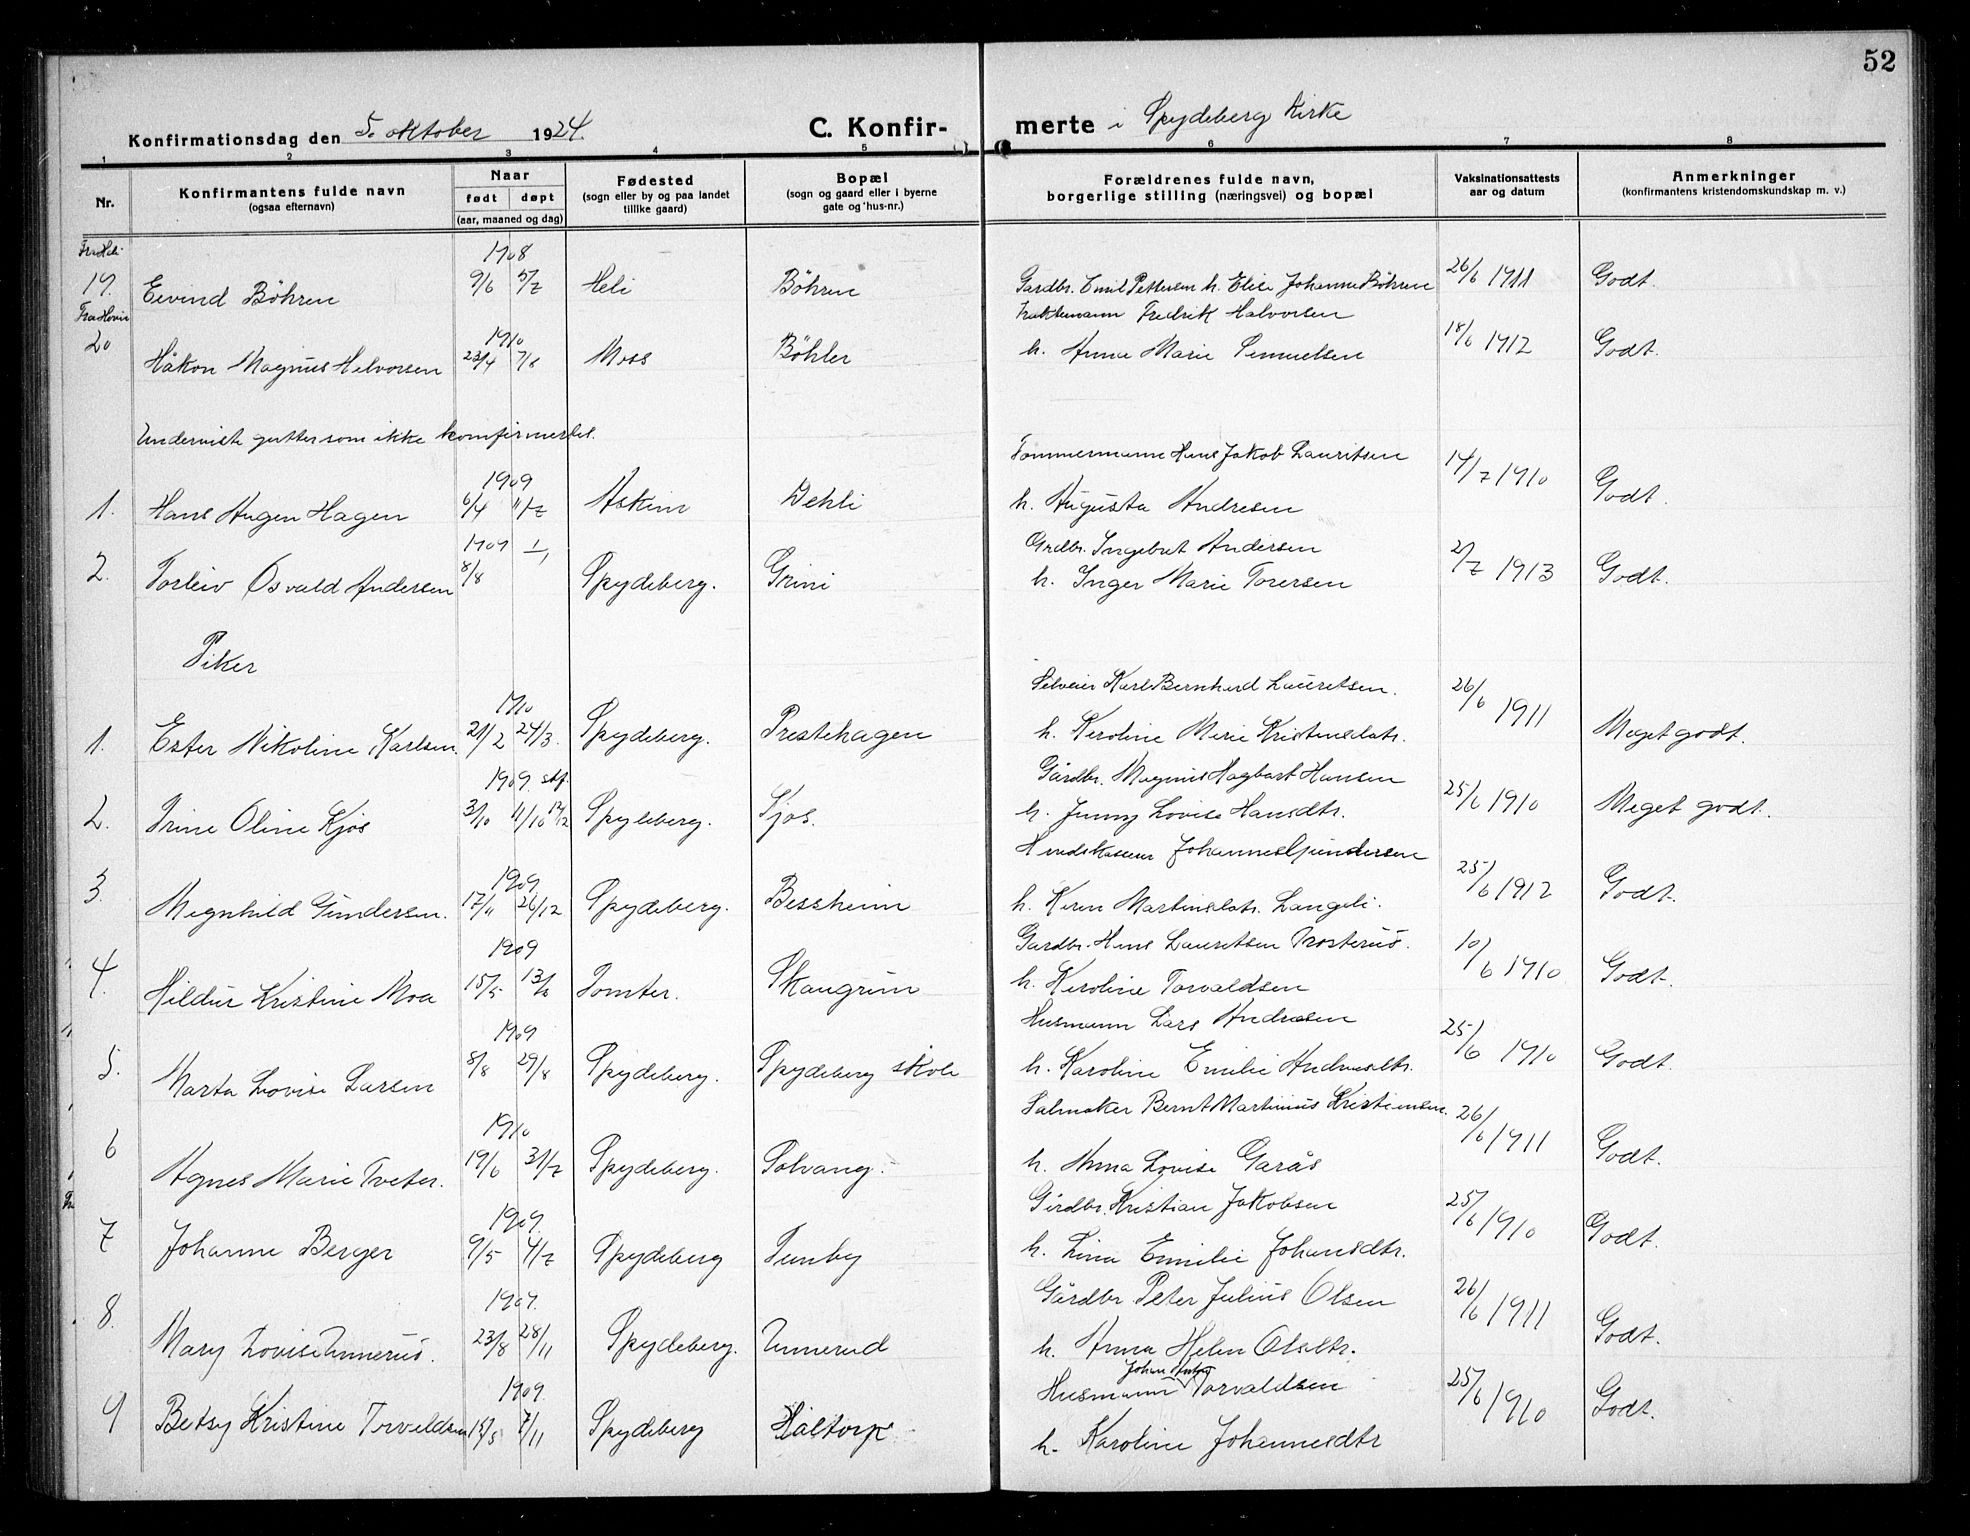 52
Konfirmationsdag den 5. oktober 1924. C. Konfirmerte i Spydeberg Kirke
1 2 3 4 5 6 7 8
Nr. Konfirmantens fulde navn (ogsaa efternavn) Naar født døpt (aar, maaned og dag) Fødested (sogn eller by og paa landet tillike gaard) Bopæl (sogn og gaard eller i byerne gate og hus-nr.) Forældrenes fulde navn, borgerlige stilling (næringsvei) og bopæl Vaksinationsattests aar og datum Anmerkninger (konfirmantens kristendomskundskap m. v.)
Fra Heli
1908
19. Eivind Böhren 9/6 5/7 Heli Böhren Gardbr. Emil Pettersen h. Elise Johanne Böhren 26/6 1911 Godt.
Fra Hovin
1910 Fredrik Halvorsen
20 Håkon Magnus Halvorsen 23/4 7/8 Moss Böhler h. Anna Marie Semuelsen 18/6 1912 Godt.
Underviste gutter som ikke konfirmertes.
1909 Tømmermann Hans Jakob Lauritsen
1. Hans Hagen 6/4 11/7 Askim Dehli h. Augusta Andresen 14/7 1910 Godt.
1909 1/1 Grdbr. Ingebret Andersen
2. Torleiv Osvald Andersen 8/8 Spydeberg. Grini h. Inger Marie Torersen 2/7 1913 Godt.
Piker
1910 Selveier Karl Bernhard Lauritsen.
1. Ester Nikoline Karlsen. 21/2 24/3. Spydeberg. Prestehagen h. Karoline Marie Kristensdatr. 26/6 1911 Meget godt.
1909. stf. Gårdbr. Magnus Hagbart Hansen
2. Trine Oline Kjos 3/10 11/10 12/12 Spyleberg. Kjos. h. Jenny Lovise Hansdtr. 25/6 1910 Meget godt.
1909 Johannes Gundersen
3. Magnhild Gundersen. 17/11 26/12 Spydeberg. Bessheim h. Karen Martinsdatr. Langeli. 25/6 1912 Godt.
1909 Gardbr. Hans Lauritsen Trosterud.
4. Hildur Kristine Moa 15/5 Tomter. Skaugrim h. Karoline Torvaldsen 10/6 1910 Godt.
1909 Husmann Lars Andresen
5. Marta Lovise Larsen 8/8 29/8 Spydeberg. Spydeberg skole h. Karoline Emilie Andreasdtr. 25/6 1910 Godt.
1910 Salmaker Bernt Martinius Kristiansen.
6 Agnes Marie Tveter. 19/6 31/7 Spydeberg. Solvang. h. Anna Lovise Garås 26/6 1911 Godt.
1909. Gårdbr. Kristian Jakobsen
7 Johanne Berger 9/5 4/7 Spydeberg Tunby h. Lina Emilie Johansdtr. 25/6 1910 Godt.
1909. Gårdbr. Peter Julius Olsen
8. Mary Lovise Unnerud. 23/8 28/11 Spydeberg. Unnerud h. Anna Helen Olsdtr. 26/6 1911 Godt.
1909. Husmann Johan Torvaldsen
9 Betsy Kristine Torvaldsen 15/5 7/11 Spydeberg Haltorp h. Karoline Johannesdtr 25/6 1910 Godt.